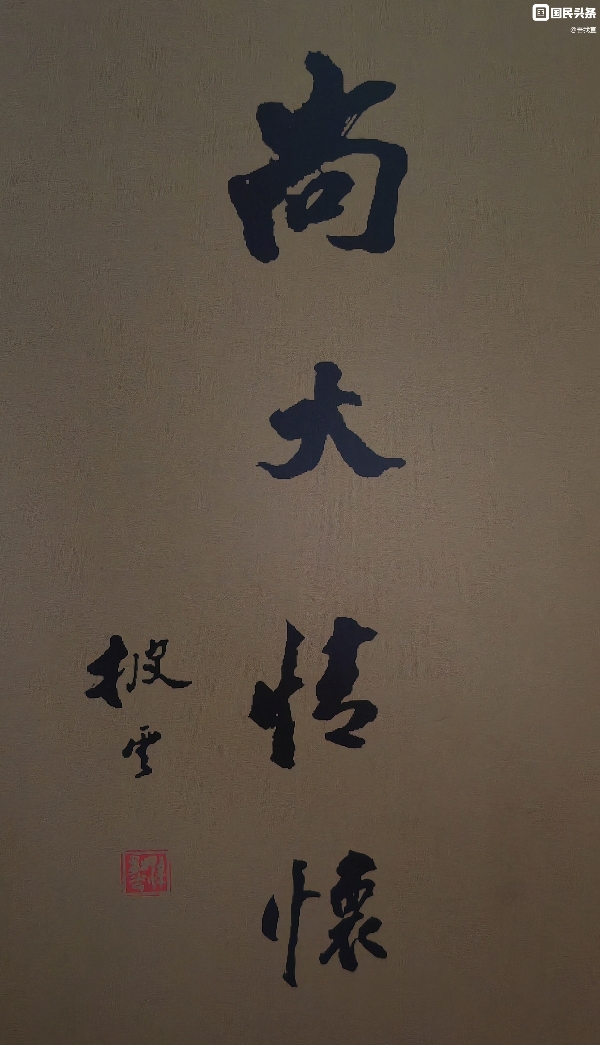 国 国民头条
尚大情懷
披雲